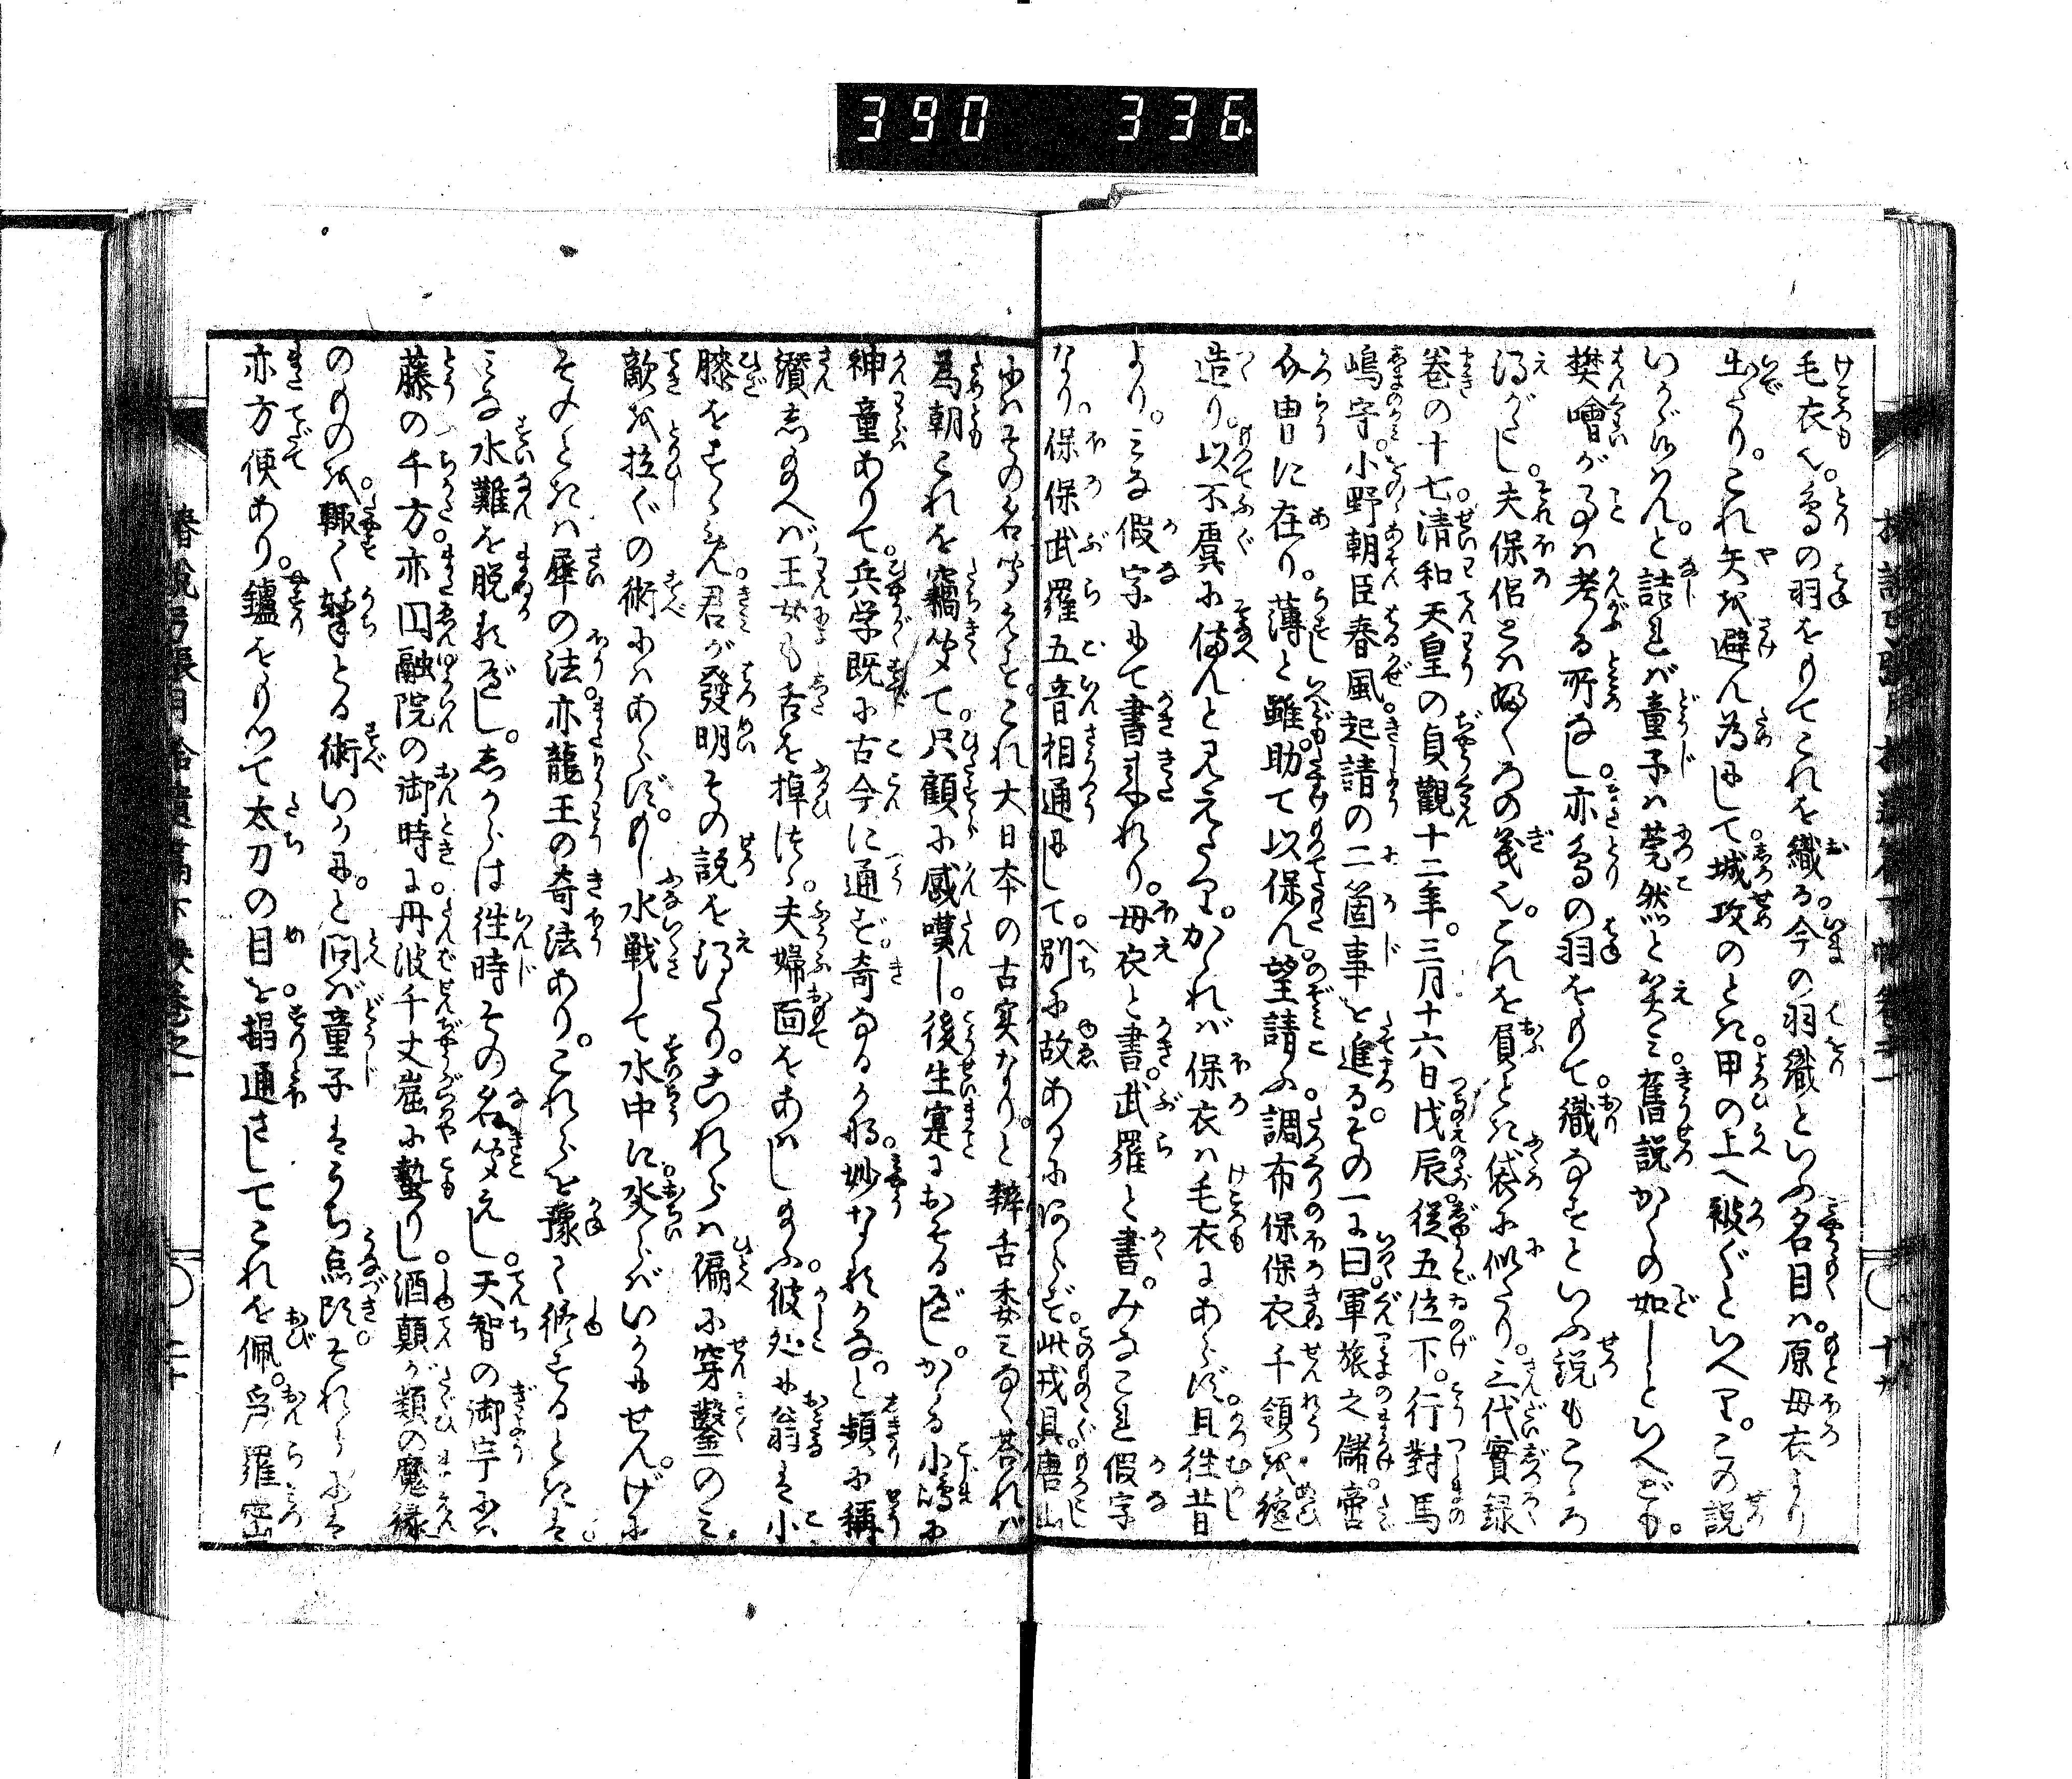 390 336
毛衣也。鳥の羽をもてこれを織る。今の羽織といふ名目は。原母衣より
出たり。これ矢を避ん為にして。城攻のとき。甲の上へ被ぐといへり。この説
いかゞ侍らんと詰れば。童子は莞然と笑み。舊説かくの如しといへども。
樊噲が事は考る所なし。亦鳥の羽をもて。織なすといふ説もこゝろ
得がたし。夫保侶とは。ふくろの義也。これを負とき袋に似たり。三代實録
巻の十七。清和天皇の貞觀十二年。三月十六日戊辰。從五位下。行對馬
嶋守。小野朝臣春風。起請の二箇事を進る。その一に曰。軍旅之儲。啻
介冑に在り。薄と雖。助て以保ん。望請ふ。調布保保衣千領を縫
造り。以不虞に備んと見えたり。かゝれば保衣は毛衣にあらず。且往昔
より。みな假字にて書来れり。母衣と書。武羅と書。みなこれ假字
なり。保保武羅五音相通にして。別に故あるにあらず。此戎具。唐山
にはその名聞えず。これ大日本の古実なり。と辨舌委みなく荅れば
為朝これを竊聞て。只顧に感嘆し。後生寔におそるべし。かゝる小嶋に
神童ありて。兵学既に古今に通ず。奇なるかな。妙なるかな。と頻に稱
讃し給へば。王女も舌を掉はし。夫婦面をあはし給ふ。彼処に翁は小
膝をすゝみ。君が發明その説を得たり。これらは偏に穿鑿のみ。
敵を拉ぐの術にはあらず。もし水戦して水中に没らばいかにせん。げに
そのときは犀の法。亦龍王の奇法あり。これらを豫く修するときは。
みな水難を脱るべし。しからは往時その名聞えし。天智の御宇には
藤の千方。亦円融院の御時に。丹波千丈嵓に蟄りし酒顛が類の魔縁
のものを。輙く撃とる術いかに。と問ば童子はうち点頭。それらには
亦方便あり。鑪をもつて太刀の目を搨通さしてこれを佩。
椿説弓張月拾遺